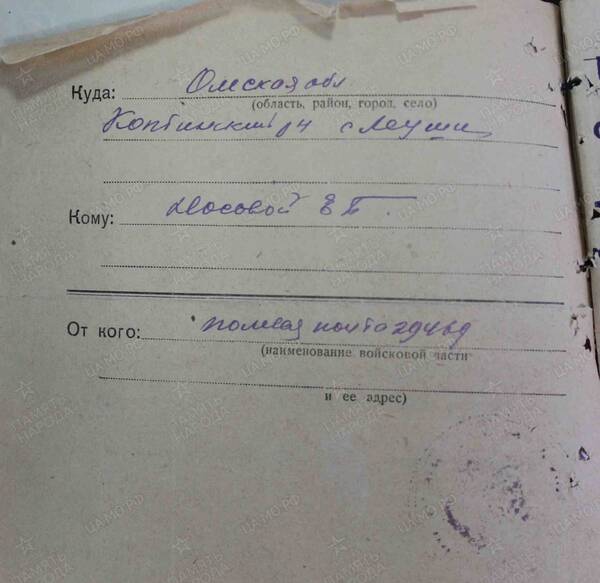 Куда: Омская обл
(область, район, город, село)
Континский рн с Леуши
Кому: Носовой Е Т.
От кого: полевая почта 29469
(наименование войсковой части
и ее адрес)